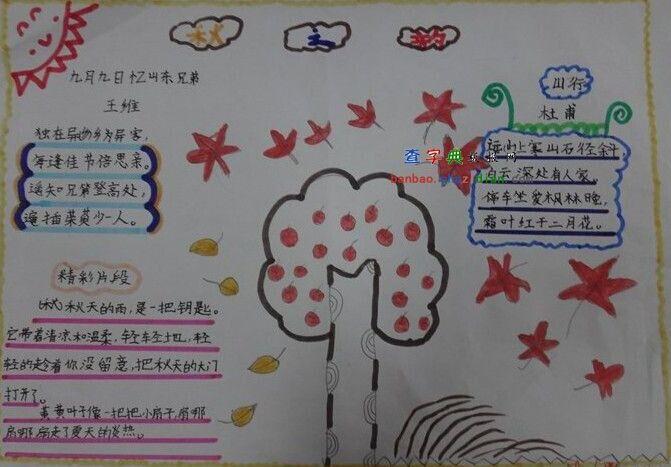 秋之韵
九月九日忆山东兄弟
王维
独在异乡为异客，
每逢佳节倍思亲。
遥知兄弟登高处，
遍插茱萸少一人。
精彩片段
秋天的雨，是一把钥匙。
它带着清凉和温柔，轻轻地，轻
轻的趁着你没留意，把秋天的大门
打开了。
黄黄叶子像一把把小扇子，扇哪
扇哪扇走了夏天的炎热。
山行
杜甫
远上寒山石径斜
白云深处有人家。
停车坐爱枫林晚，
霜叶红于二月花。
查字典